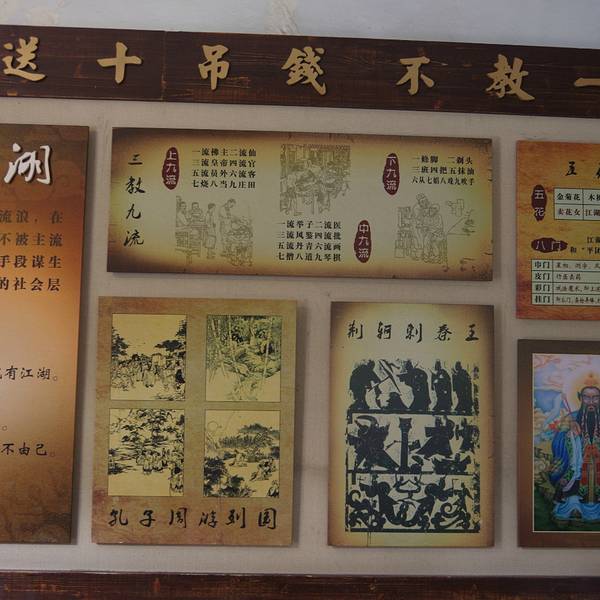 送十吊錢不教一
湖
流浪，在
不被主流
手段谋生
的社会层
有江湖。
不由己。
三教九流
上九流
一流佛主二流仙
三流皇帝四流官
五流员外六流客
七烧八当九庄田
下九流
一修脚 二剃头
三班四把五抹油
六从七娼八戏九吹手
中九流
一流举子二流医
三流风鉴四流批
五流丹青六流画
七僧八道九琴棋
五花
金菊花
木棉
卖花女
江湖
八门
巾门
皮门
彩门
挂门
孔子周游列国
荆轲刺秦王